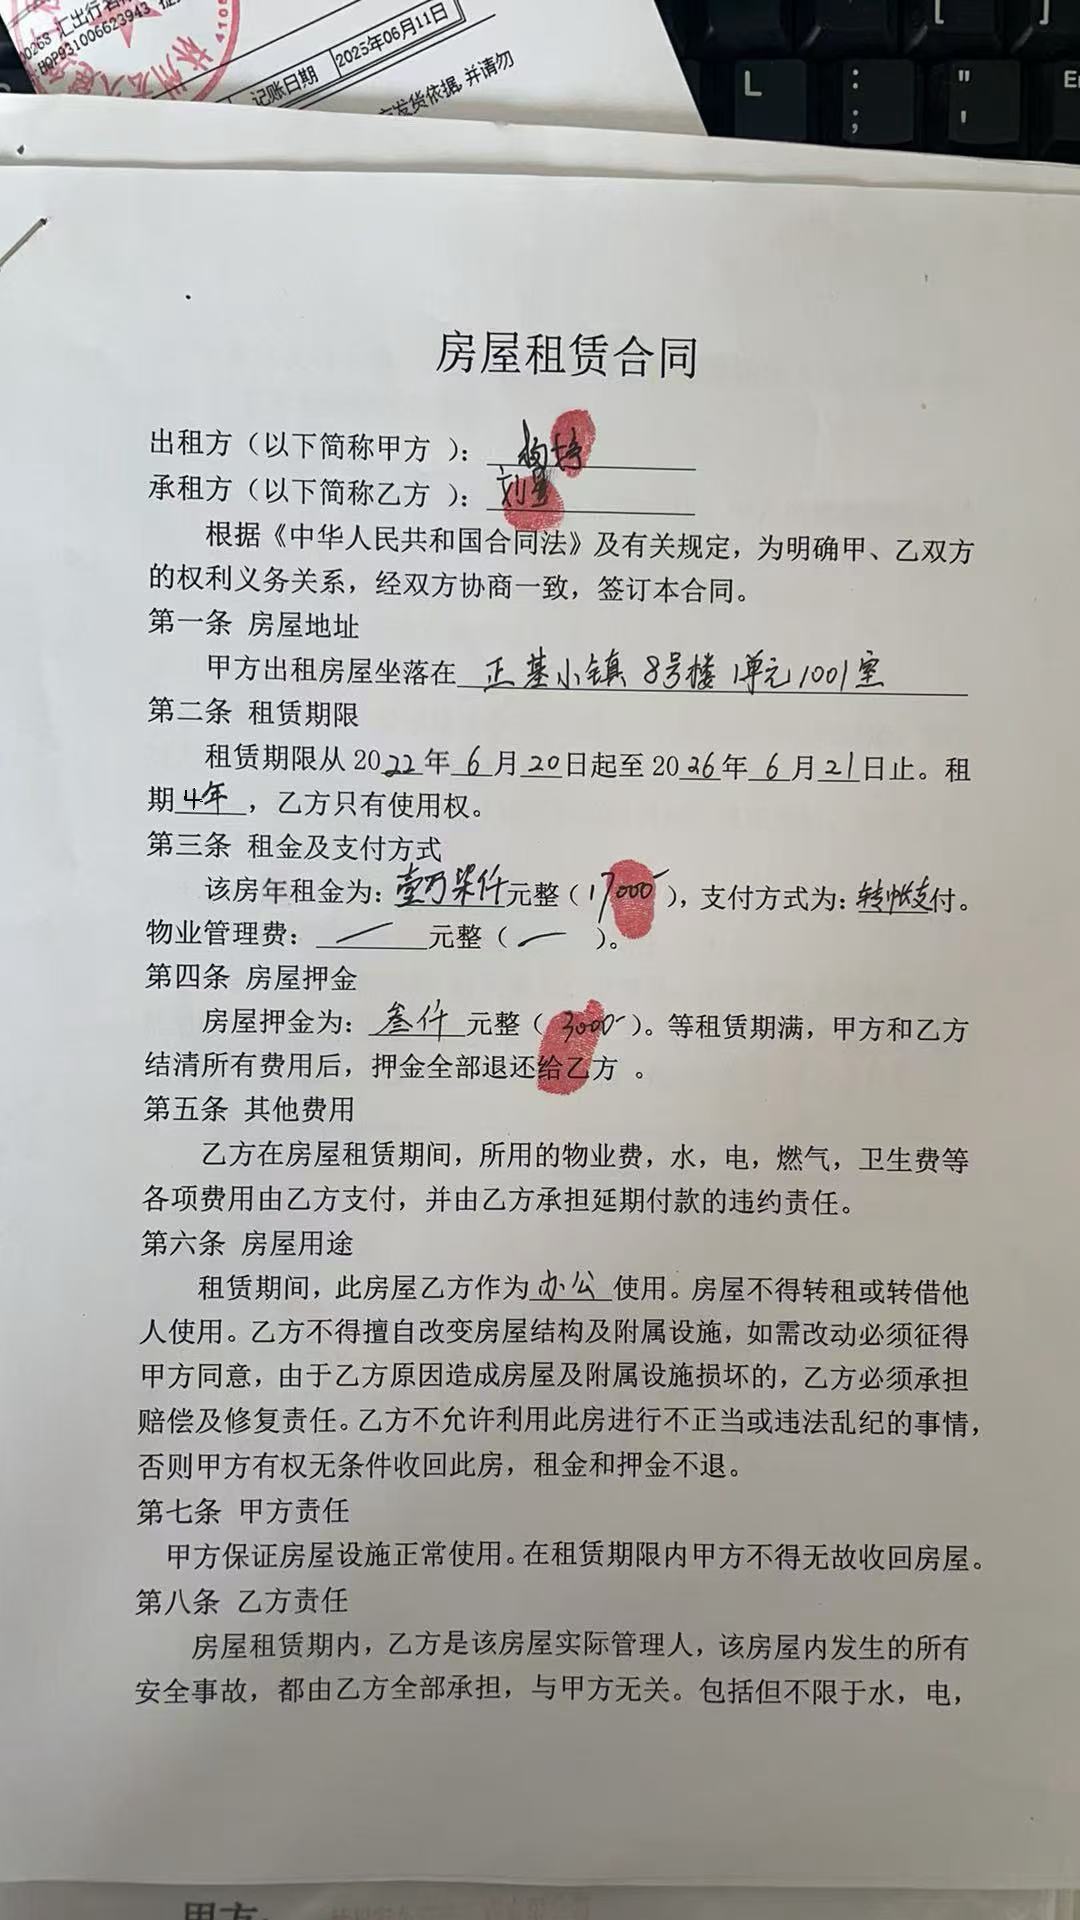 00268 汇出行名
HQP931006623943
记账日期 2025年06月11日
发货依据,并请勿
L
: ;
" '
[
]
房屋租赁合同
出租方（以下简称甲方 ）：
承租方（以下简称乙方 ）：刘星
根据《中华人民共和国合同法》及有关规定，为明确甲、乙双方
的权利义务关系，经双方协商一致，签订本合同。
第一条 房屋地址
甲方出租房屋坐落在 正基小镇 8号楼 1单元1001室
第二条 租赁期限
租赁期限从2022年6月20日起至2026年6月21日止。租
期4年，乙方只有使用权。
第三条 租金及支付方式
该房年租金为：壹万柒仟元整（17000），支付方式为：转帐支付。
物业管理费：／元整（／）。
第四条 房屋押金
房屋押金为：叁仟元整（3000）。等租赁期满，甲方和乙方
结清所有费用后，押金全部退还给乙方 。
第五条 其他费用
乙方在房屋租赁期间，所用的物业费，水，电，燃气，卫生费等
各项费用由乙方支付，并由乙方承担延期付款的违约责任。
第六条 房屋用途
租赁期间，此房屋乙方作为办公使用。房屋不得转租或转借他
人使用。乙方不得擅自改变房屋结构及附属设施，如需改动必须征得
甲方同意，由于乙方原因造成房屋及附属设施损坏的，乙方必须承担
赔偿及修复责任。乙方不允许利用此房进行不正当或违法乱纪的事情，
否则甲方有权无条件收回此房，租金和押金不退。
第七条 甲方责任
甲方保证房屋设施正常使用。在租赁期限内甲方不得无故收回房屋。
第八条 乙方责任
房屋租赁期内，乙方是该房屋实际管理人，该房屋内发生的所有
安全事故，都由乙方全部承担，与甲方无关。包括但不限于水，电，
甲方：